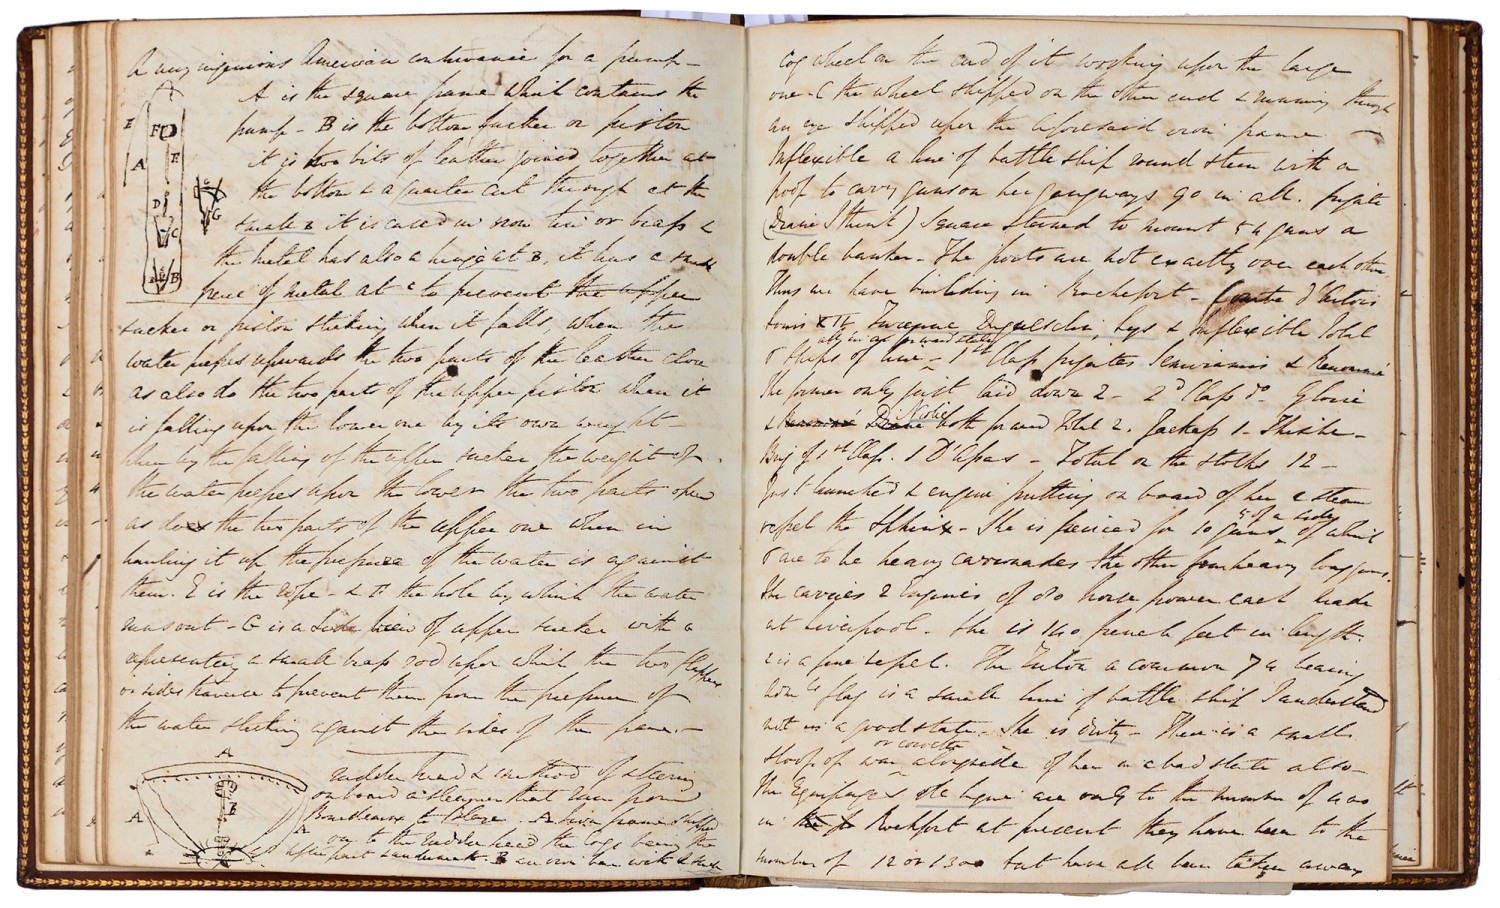 A very ingenious American contrivance for a pump –
A is the square frame which contains the
pump – B is the bottom sucker or piston
it is two bits of leather joined together at
the bottom & a quarter cut through at the
it is cased in iron tin or brass &
the metal has also a hinge at B, it has a small
piece of metal at c to prevent the upper
sucker or piston sticking when it falls, when the
water presses upwards the two parts of the leather close
as also do the two parts of the upper piston when it
is falling upon the lower one by its own weight –
when by the falling of the upper sucker the weight of
the water presses upon the lower the two parts open
as does the two parts of the upper one when in
hauling it up the pressure of the water is against
them. E is the rope – & F the hole by which the water
runs out – G is a side view of upper sucker with a
representing a small brass rod upon which the two flappers
or sides traverse to prevent them from the pressure of
the water sticking against the sides of the frame. –
A
E
F
A
E
D
C
B
G
rudder head & method of steering
on board a steamer that runs from
Bourdeaux to . A iron frame shipped
on to the rudder head the cogs being the
after part B an iron bar with a small
A
A
B
cog wheel on the end of it working upon the large
one – C the wheel shipped on the other end & running through
an eye shipped upon the aforesaid iron frame –
Inflexible a line of battle ship round stern with a
poop to carry guns on her gangways go in all. frigate
(Diane I think) square sterned to mount 54 guns a
double banker – The ports are not exactly over each other.
Thus we have building in Rochefort – Comte d'Artois
Louis XIV, Turenne, Duguesclin, Lys & Inflexible Total
6 ships of line – 1st Class frigates Semiramis &
all in a forward state
the former only just laid down 2 – 2d Class do – Gloire
& Diane both forward Total 2.
Niobe
Brig of 1st Class. 1 D'Assas – Total on the stocks 12 –
Just launched & engine putting on board of her a steam
vessel the Sphinx – She is pierced for 10 guns of which
5 of a side
6 are to be heavy carronades the other four heavy long guns.
She carries 2 Engines of 80 horse power each made
at Liverpool. She is 140 french feet in length.
& is a fine vessel. The a common 74 bearing
flag is a small line of battle ship I understand
not in a good state. She is dirty – There is a small
sloop of war alongside of her in a bad state also –
or corvette
The Equipages de ligne are only to the number of 400
in Rochfort at present they have been to the
number of 12 or 1300 but have all been taken away